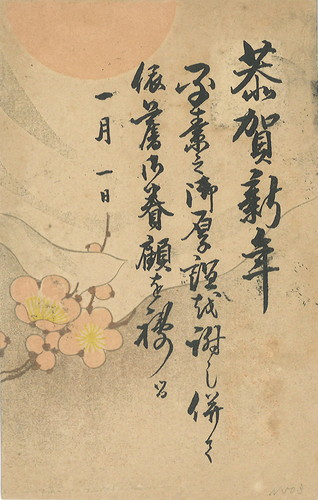 恭賀新年
平素之御厚誼を謝し併て
依舊御眷顧を祷る
一月一日